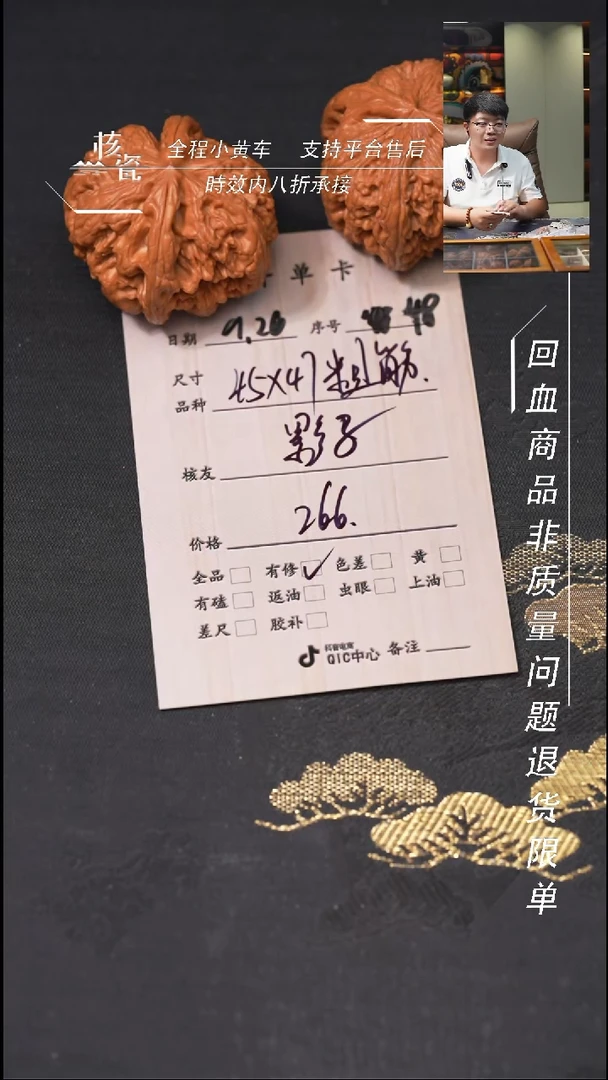 核瓷
全程小黄车 支持平台售后
時效内八折承接
单卡
日期 9.26 序号
尺寸
品种 45X47 粗筋.
核友 影子
价格 266.
全品 有修 ✓ 色差 黄
有磕 返油 虫眼 上油
差尺 胶补
抖音电商
QIC中心 备注
回血商品非质量问题退货限单